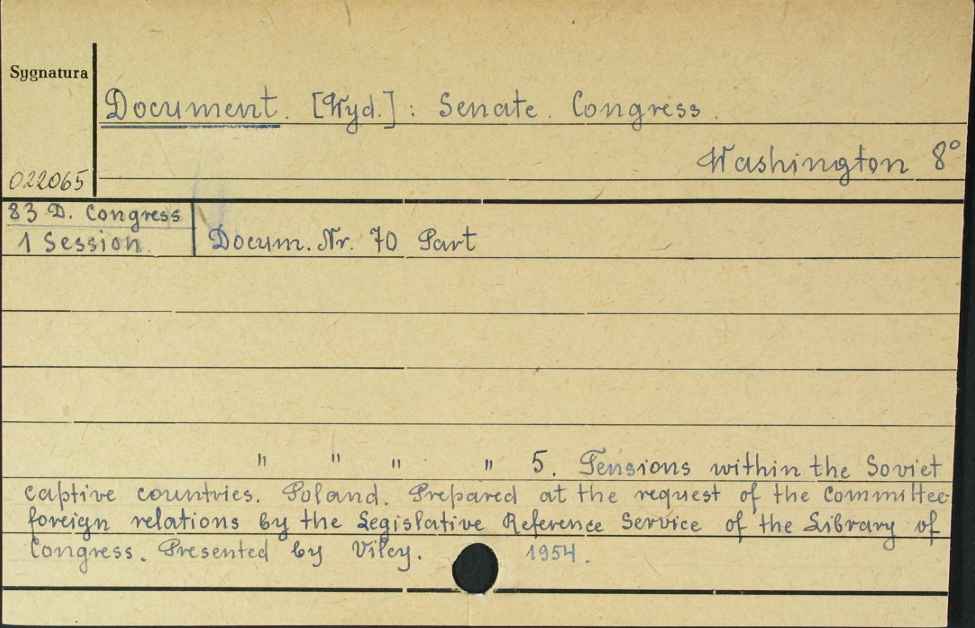 Sygnatura
Document. [Wyd.]: Senate. Congress.
Washington 8°
022065
83 D. Congress
1 Session. Docum. Nr. 70 Part
" " " " 5. Tensions within the Soviet
captive countries. Poland. Prepared at the request of the Committee
foreign relations by the Legislative Reference Service of the Library of
Congress. Presented by Viley. 1954.